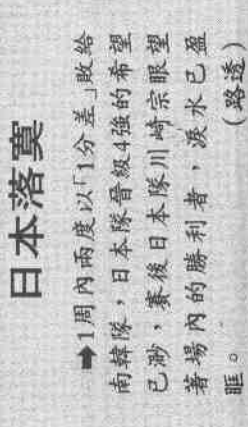 日本落寞
➡1周內兩度以「1分差」敗給
南韓隊，日本隊晉級4強的希望
已渺，賽後日本隊川崎宗眼望
著場內的勝利者，淚水已盈
眶。（路透）